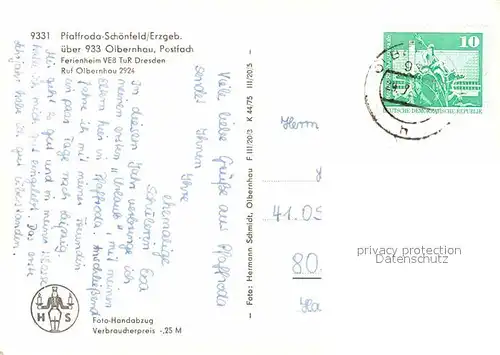 9331 Pfaffroda-Schönfeld/Erzgeb.
über 933 Olbernhau, Postfach
Ferienheim VEB TuR Dresden
Ruf Olbernhau 2924
Viele liebe Grüße aus Pfaffroda
sendet Ihnen
Ihre
ehemalige
Schülerin Eva
In diesem Jahr verbringe ich
meinen ersten "Urlaub" mit meinen
Eltern hier in Pfaffroda. Anschließend
fahre ich mit meinen Freunden
ein paar Tage nach Leipzig.
Mir geht es gut und in meinem
habe ich mich gut eingelebt. Das erste
habe ich gut überstanden.
H S
Foto-Handabzug
Verbraucherpreis -,25 M
– Foto: Hermann Schmidt, Olbernhau F III/20/3 K 44/75 III/20/3 –
10
DEUTSCHE DEMOKRATISCHE REPUBLIK
Herrn
41.05
80
privacy protection
Data according to DSGVO